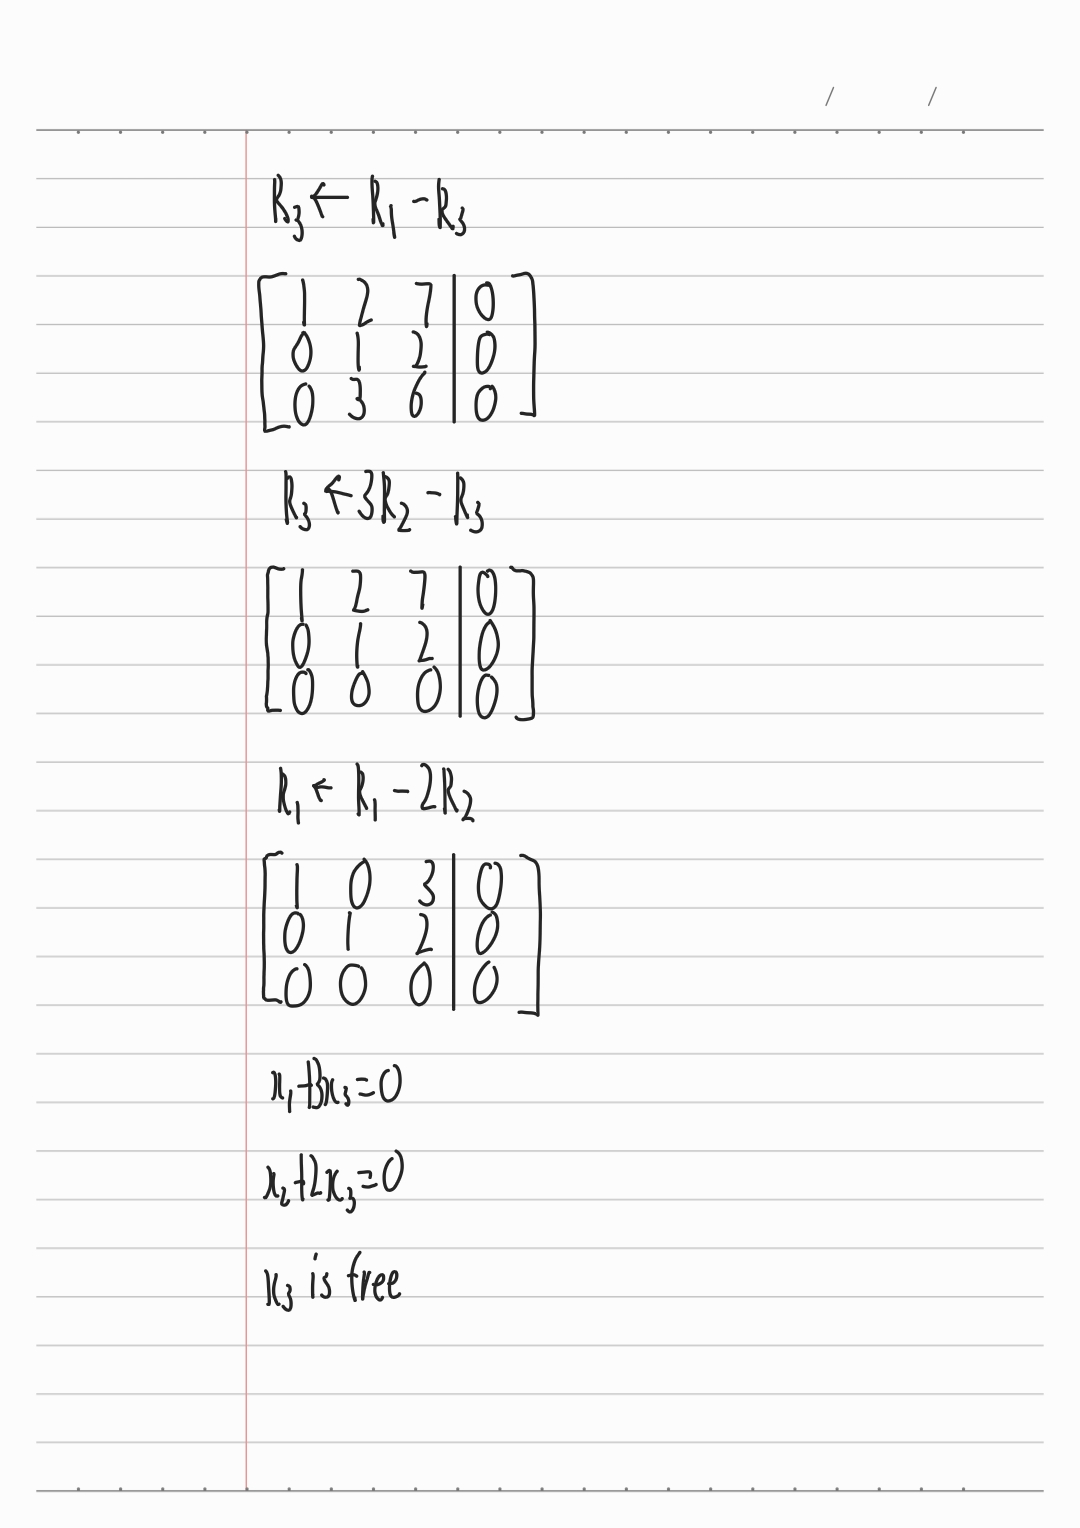 / /
R₃ ← R₁ - R₃
[ 1 2 7 | 0 ]
[ 0 1 2 | 0 ]
[ 0 3 6 | 0 ]
R₃ ← 3R₂ - R₃
[ 1 2 7 | 0 ]
[ 0 1 2 | 0 ]
[ 0 0 0 | 0 ]
R₁ ← R₁ - 2R₂
[ 1 0 3 | 0 ]
[ 0 1 2 | 0 ]
[ 0 0 0 | 0 ]
x₁+3x₃=0
x₂+2x₃=0
x₃ is free